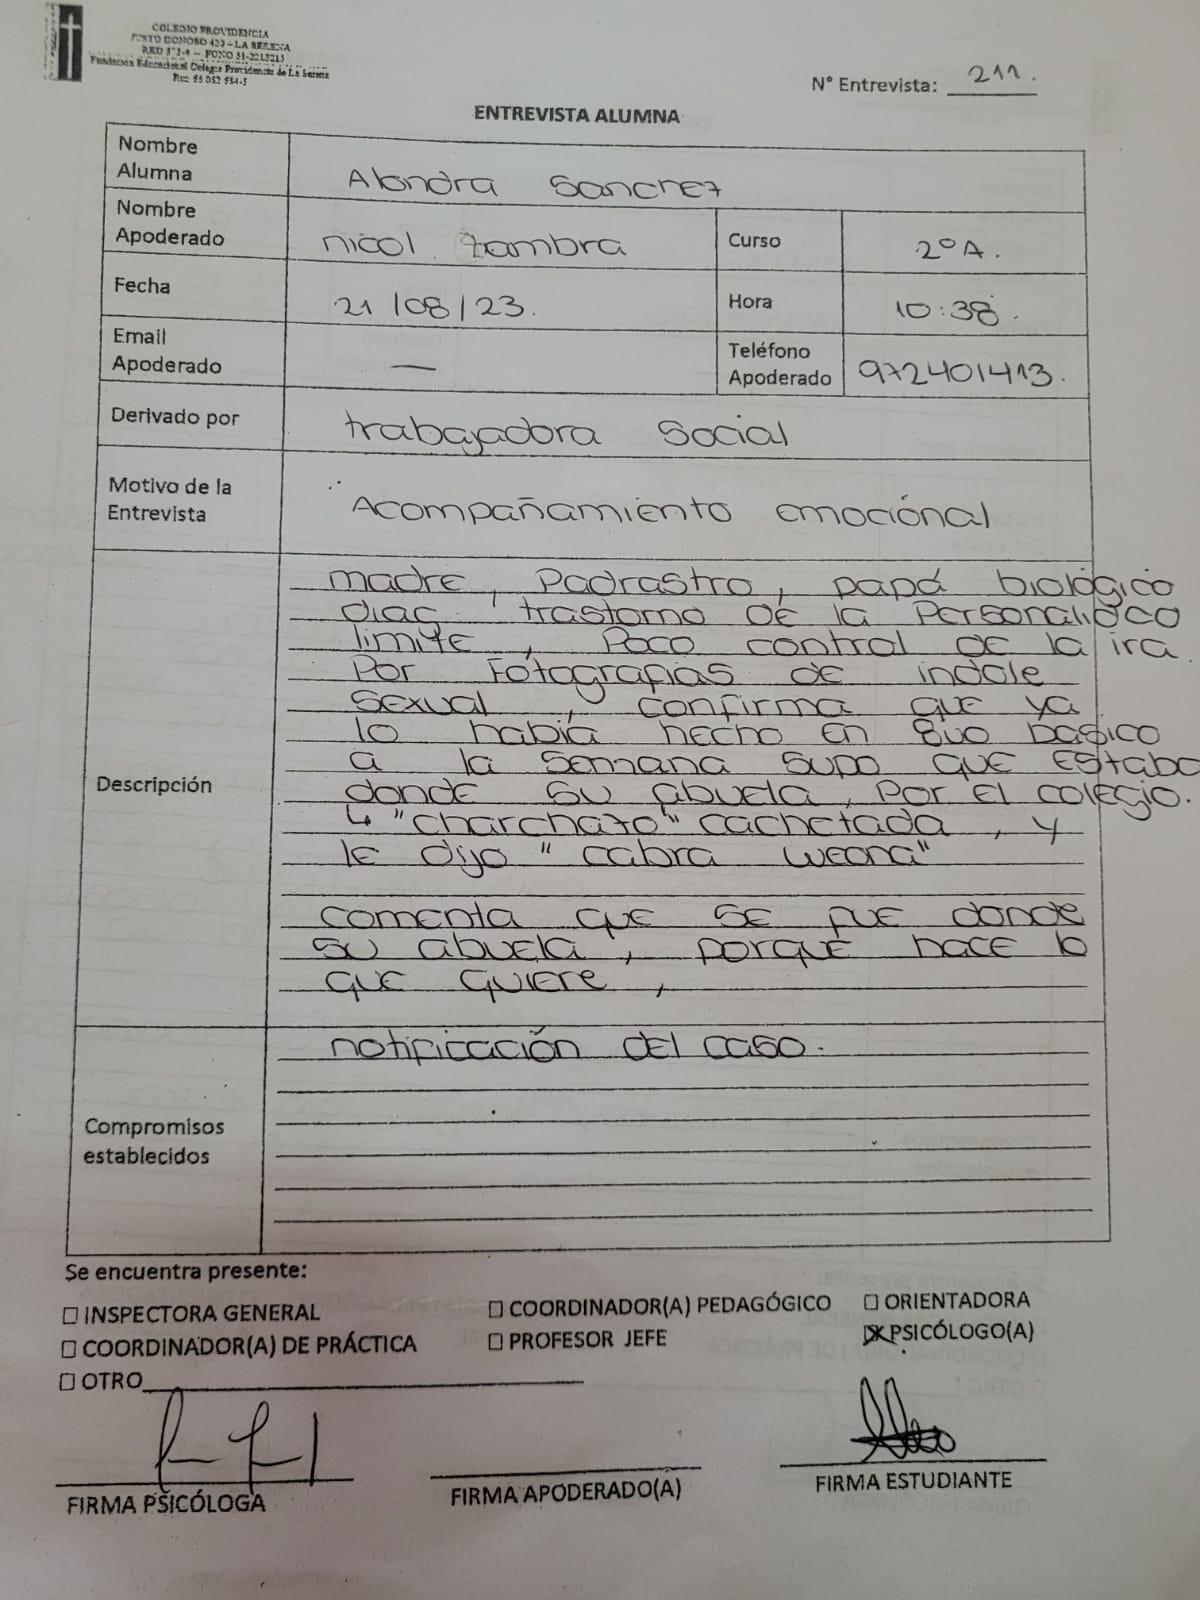 COLEGIO PROVIDENCIA
JUSTO DONOSO 420 - LA SERENA
Fundación Educacional Colegio Providencia de La Serena
N° Entrevista: 211.
ENTREVISTA ALUMNA
Nombre Alumna
Alondra Sanchez
Nombre Apoderado
nicol zambra
Curso
2°A.
Fecha
21/08/23.
Hora
10:38.
Email Apoderado
—
Teléfono Apoderado
972401413.
Derivado por
trabajadora Social
Motivo de la Entrevista
Acompañamiento emociónal
Descripción
madre, Padrastro, papá biológico
diag. trastorno DE la Personalid
limite, Poco control de la ira.
Por Fotografias de indole
Sexual, confirma que ya
lo había hecho en 8vo básico
a la semana supo que Estaba
donde su abuela, Por El colegio.
↳ "charchazo" cachetada, y
le dijo "cabra weona"
comenta que se fue donde
su abuela, porque hace lo
que quiere,
Compromisos establecidos
notificación del caso.
Se encuentra presente:
☐ INSPECTORA GENERAL
☐ COORDINADOR(A) PEDAGÓGICO
☐ ORIENTADORA
☐ COORDINADOR(A) DE PRÁCTICA
☐ PROFESOR JEFE
☒ PSICÓLOGO(A)
☐ OTRO
FIRMA PSICÓLOGA
FIRMA APODERADO(A)
FIRMA ESTUDIANTE